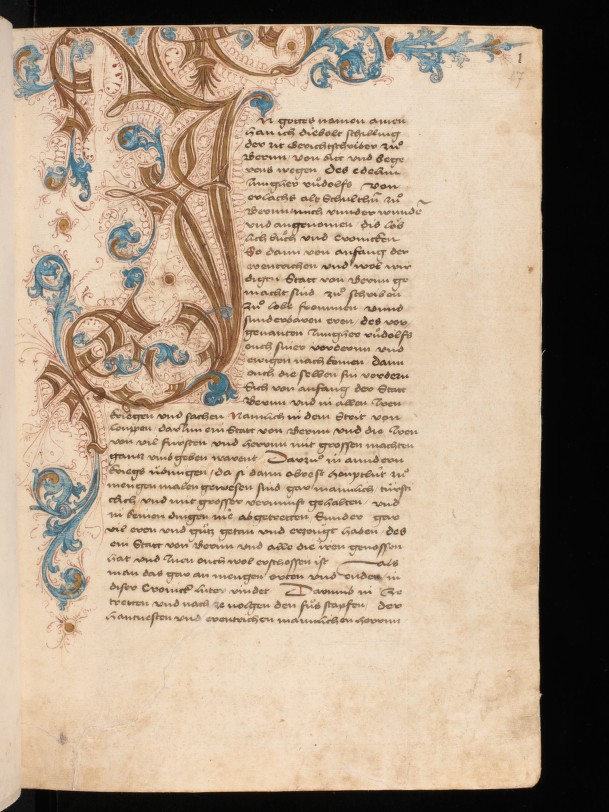 1
17
In gottes namen amen
han ich diebolt schilling
der zit Gerichtschriber zů
Bernn / von bitt und bege
rens wegen des edelnn
Jungher růdolfs von
erlachs alt Schulthß zů
Bernn mich under wunden
und angenomen dis lob
lich bůch und Cronicken
So dann von anfang der
erentrichen und wol wir
digen Statt von Bernn ge
macht sind zů schriben
Zů lobe frommen unnd
sunderbaren eren des vor
genanten Jungher růdolfs
ouch siner vorderen und
ewigen nachkomen dann
ouch die selben sin vordern
Sich von anfang der Statt
Bernn und in allen Iren
kriegen und sachen Namlich in dem Strit von
Louppen darInn ein Statt von Bernn und die Iren
von vil fürsten und herren mit grossen machten
gantz umbgeben warent Darzů in anndern
kriegs übungen / da si dann obrest houptlüt zů
mengen malen gewesen sind gar manlich / türst
clich und mit grosser vernunft gehalten / und
in keinen dingen nie abgetretten Sunder gar
vil eren und gůtz getan und erzougt haben / des
ein Statt von Bernn und alle die iren genossen
hat und Inen ouch wol erschossen ist Als
man das gar an mengen orten und enden in
diser Cronick hiter vindet Darumb in Ze
tretten und nach ze volgen den fůs stapfen der
hantvesten und erentrichen manlichen herrenn